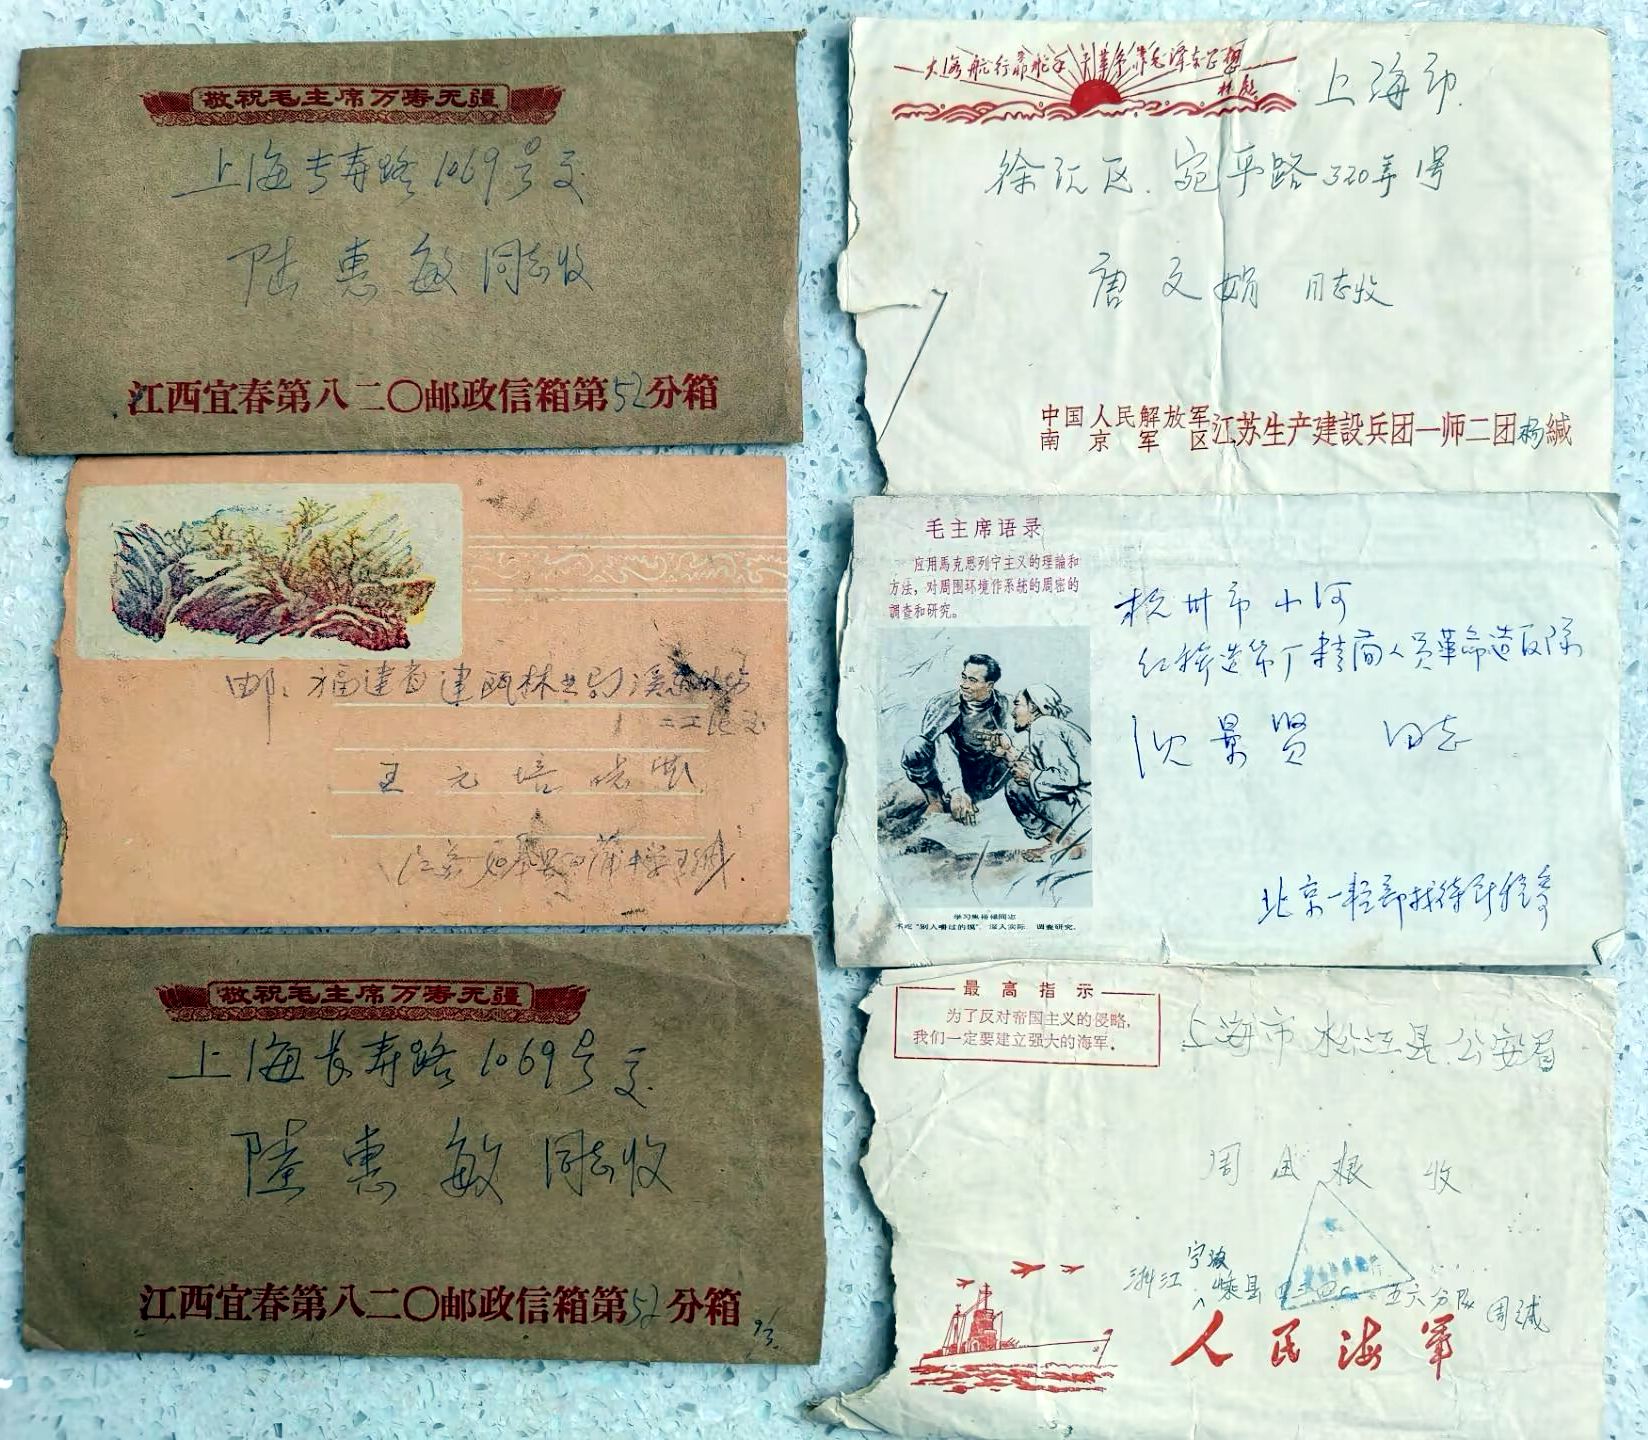 敬祝毛主席万寿无疆
上海长寿路1069号交
陆惠敏同志收
江西宜春第八二〇邮政信箱第52分箱
邮:福建省建瓯林业局
王元培
敬祝毛主席万寿无疆
上海长寿路1069号交
陆惠敏同志收
江西宜春第八二〇邮政信箱第52分箱
9/3
大海航行靠舵手 干革命靠毛泽东思想
林彪
上海市
徐汇区.宛平路320弄1号
唐文娟 同志收
中国人民解放军
南京军区江苏生产建設兵团一师二团杨緘
毛主席语录
应用馬克思列宁主义的理論和
方法,对周围环境作系統的周密的
調查和研究。
杭州市小河
红旗造纸厂精简人员革命造反队
沈景贤 同志
学习焦裕禄同志
不吃“别人嚼过的馍”,深入实际 调查研究。
北京一轻部接待
最高指示
为了反对帝国主义的侵略,
我们一定要建立强大的海军。
上海市松江县公安局
周 根 收
浙江宁波
嵊县 五六分队 周缄
人民海军